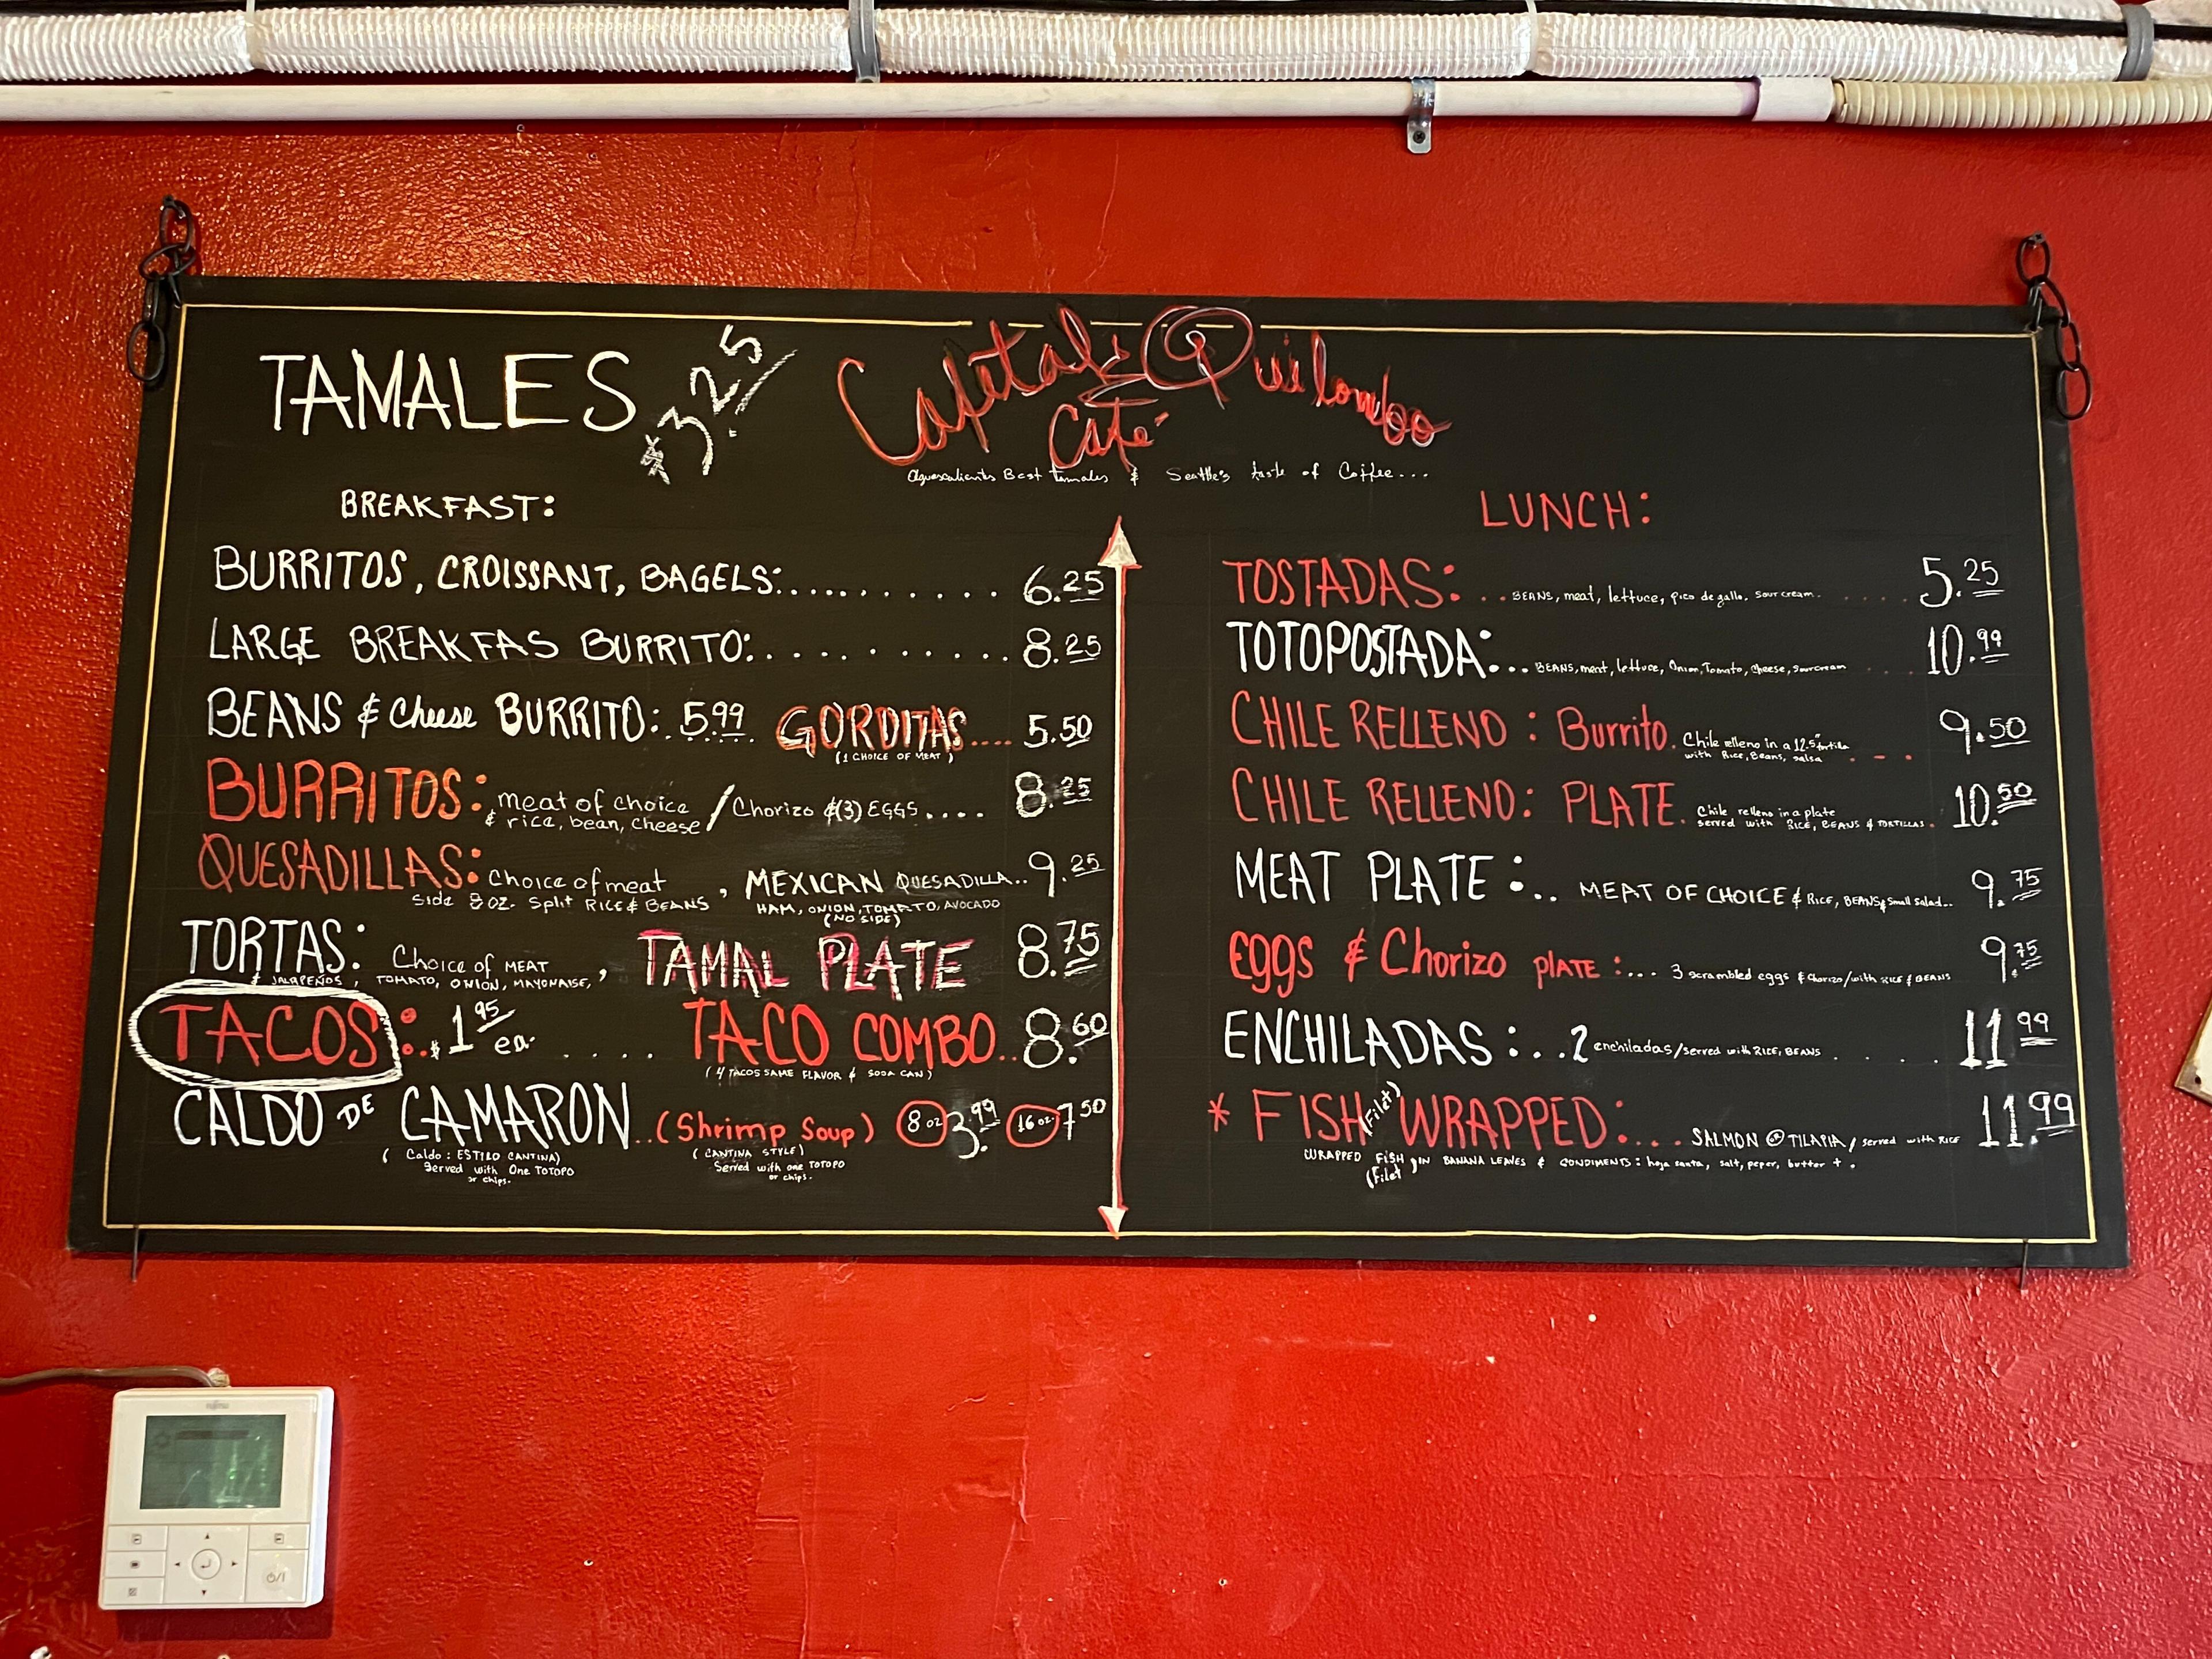 TAMALES $3.25
Capitals Quilombo
Café
Aguascalients Best tamales & Seattle's taste of Coffee...
BREAKFAST:
BURRITOS, CROISSANT, BAGELS:........... 6.25
LARGE BREAKFAS BURRITO:........... 8.25
BEANS & Cheese BURRITO: 5.99 GORDITAS.... 5.50
(1 CHOICE OF MEAT)
BURRITOS: meat of choice / Chorizo &(3) EGGS.... 8.25
& rice, bean, cheese
QUESADILLAS: Choice of meat, MEXICAN QUESADILLA.. 9.25
Side 8 oz. Split RICE & BEANS HAM, ONION, TOMATO, AVOCADO
(NO SIDE)
TORTAS: Choice of MEAT, TAMAL PLATE 8.75
& JALAPEÑOS, TOMATO, ONION, MAYONAISE,
TACOS:..$1.95 ea. .... TACO COMBO.. 8.60
(4 TACOS SAME FLAVOR & SODA CAN)
CALDO DE CAMARON..(Shrimp Soup) 8 oz 3.99 16 oz. 7.50
(Caldo: ESTILO CANTINA) (CANTINA STYLE)
Served with One TOTOPO Served with one TOTOPO
or chips. or chips.
LUNCH:
TOSTADAS:... BEANS, meat, lettuce, pico de gallo, sour cream. .... 5.25
TOTOPOSTADA:... BEANS, meat, lettuce, Onion, Tomato, Cheese, sour cream .... 10.99
CHILE RELLENO: Burrito. Chile relleno in a 12.5" tortilla 9.50
with Rice, Beans, salsa
CHILE RELLENO: PLATE. Chile relleno in a plate 10.50
served with RICE, BEANS & TORTILLAS.
MEAT PLATE:... MEAT OF CHOICE & RICE, BEANS & small salad... 9.75
Eggs & Chorizo PLATE:... 3 scrambled eggs & chorizo/with RICE & BEANS 9.75
ENCHILADAS:...2 enchiladas/served with RICE, BEANS..... 11.99
* FISH (Filet) WRAPPED:.... SALMON OR TILAPIA/ served with RICE 11.99
WRAPPED FISH (Filet), IN BANANA LEAVES & CONDIMENTS: hoja santa, salt, peper, butter +.
FUJITSU